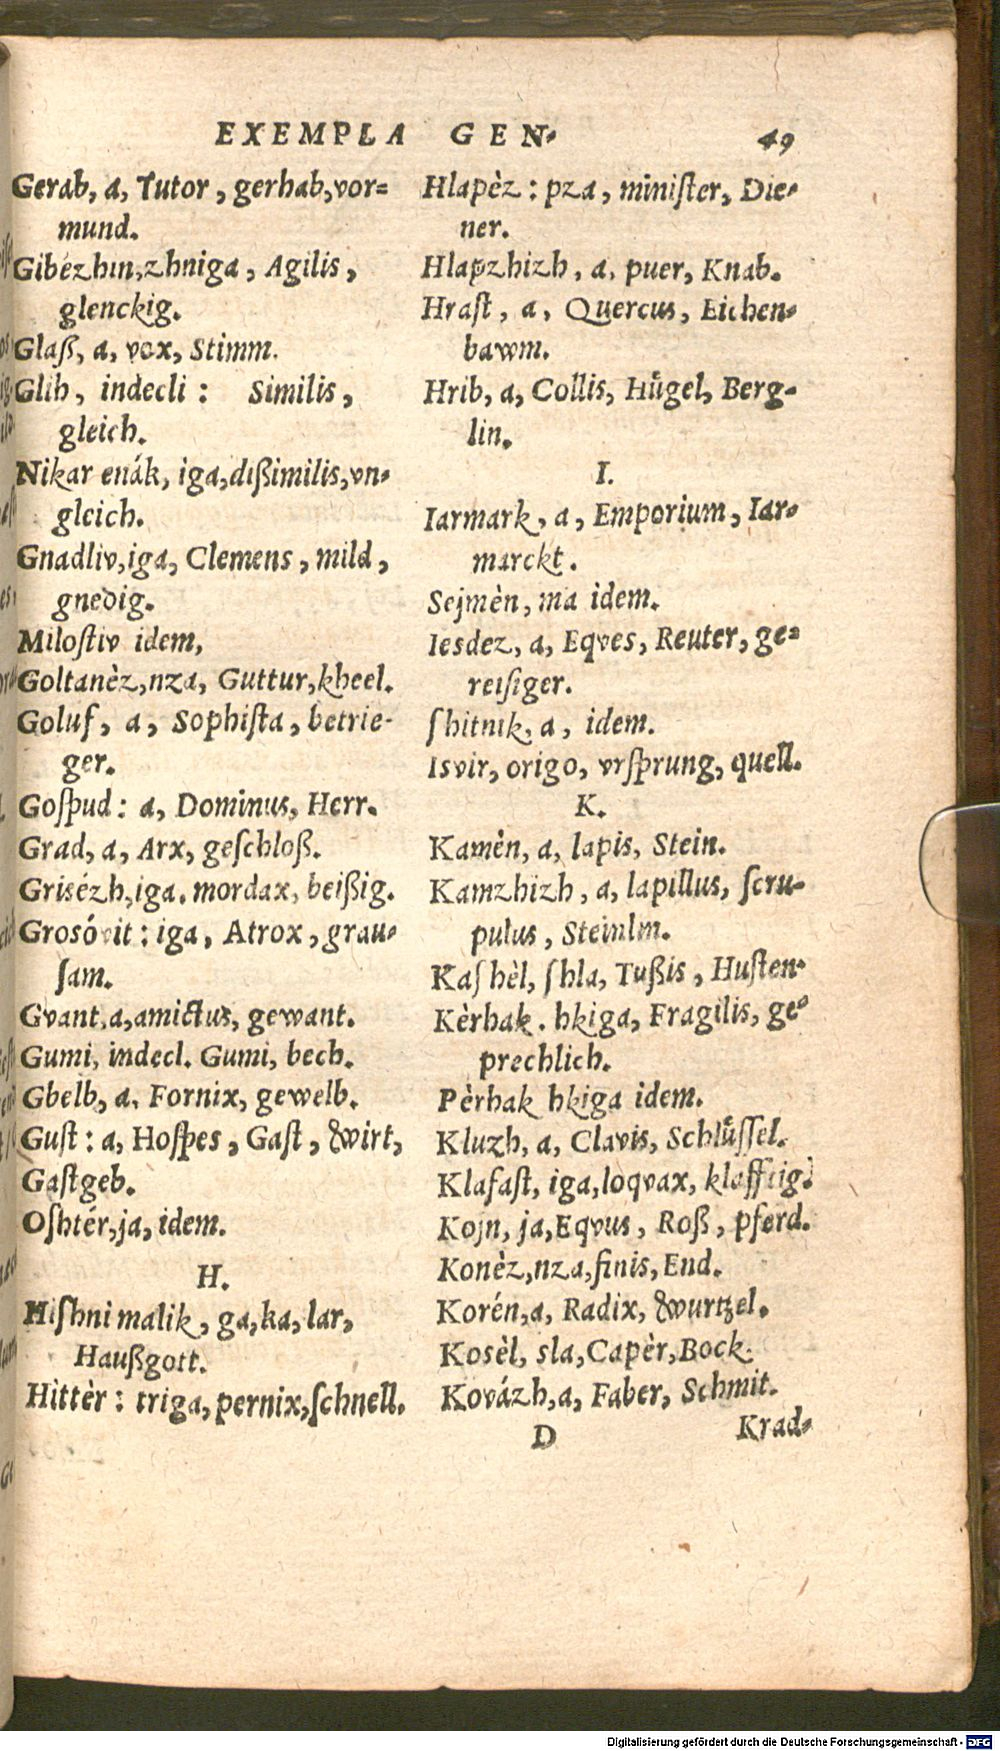 EXEMPLA GEN⸗ 49
Gerab, a, Tutor, gerhab, vor⸗
mund.
Gibézhin, zhniga, Agilis,
glenckig.
Glaß, a, vox, Stimm.
Glih, indecli: Similis,
gleich.
Nikar enák, iga, dißimilis, vn⸗
gleich.
Gnadliv, iga, Clemens, mild,
gnedig.
Miloſtiv idem,
Goltanèz, nza, Guttur, kheel.
Goluf, a, Sophiſta, betrie⸗
ger.
Goſpud: a, Dominus, Herr.
Grad, a, Arx, geſchloß.
Grisézh, iga, mordax, beißig.
Grosóvit: iga, Atrox, grau⸗
ſam.
Gvant, a, amictus, gewant.
Gumi, indecl. Gumi, bech.
Gbelb, a, Fornix, gewelb.
Guſt: a, Hoſpes, Gaſt, wirt,
Gaſtgeb.
Oſhtér, ja, idem.
H.
Hiſhni malik, ga, ka, lar,
Haußgott.
Hittèr: triga, pernix, ſchnell.
Hlapèz: pza, miniſter, Die⸗
ner.
Hlapzhizh, a, puer, Knab.
Hraſt, a, Quercus, Eichen⸗
bawm.
Hrib, a, Collis, Hügel, Berg⸗
lin.
I.
Iarmark, a, Emporium, Iar⸗
marckt.
Sejmèn, ma idem.
Iesdez, a, Eqves, Reuter, ge⸗
reiſiger.
ſhitnik, a, idem.
Isvir, origo, vrſprung, quell.
K.
Kamèn, a, lapis, Stein.
Kamzhizh, a, lapillus, ſcru⸗
pulus, Steinlin.
Kaſhèl, ſhla, Tußis, Huſten.
Kèrhak. hkiga, Fragilis, ge⸗
prechlich.
Pèrhak hkiga idem.
Kluzh, a, Clavis, Schlüſſel.
Klafaſt, iga, loqvax, klafftig.
Kojn, ja, Eqvus, Roß, pferd.
Konèz, nza, finis, End.
Korén, a, Radix, wurtzel.
Kosèl, sla, Capèr, Bock.
Kovázh, a, Faber, Schmit.
D Krad⸗
Digitalisierung gefördert durch die Deutsche Forschungsgemeinschaft - DFG